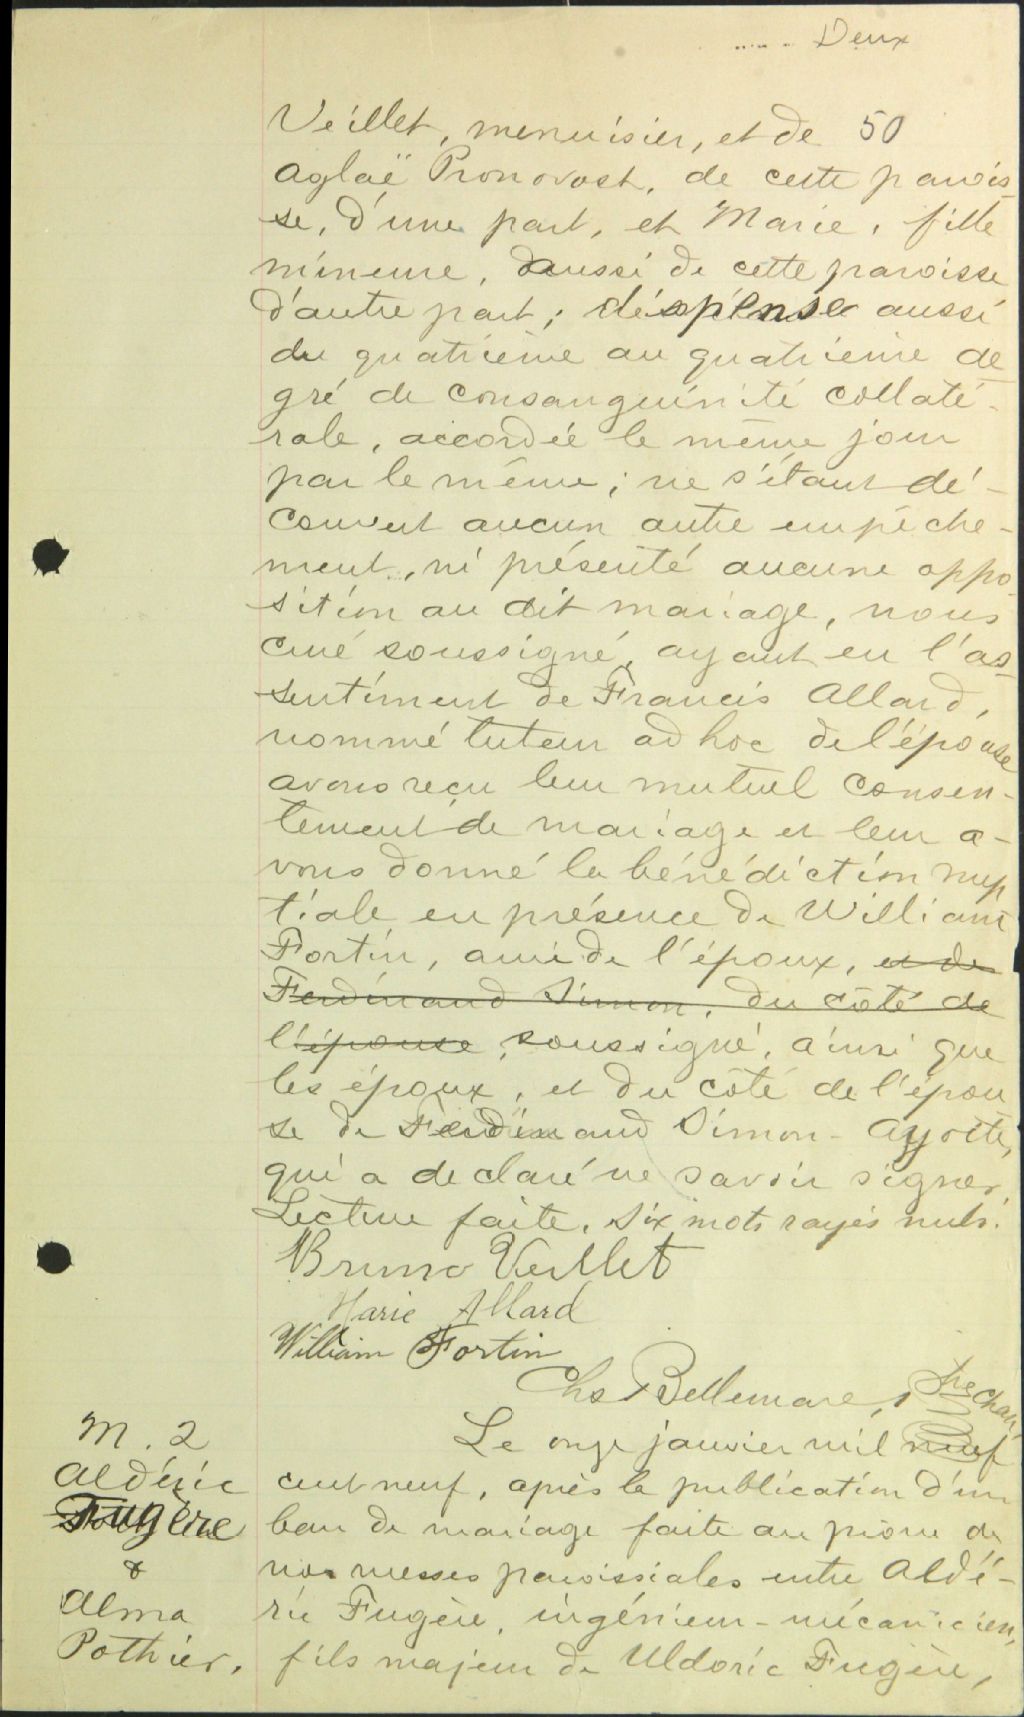 Deux
Veillet, menuisier, et de 50
Aglaë Pronovost, de cette parois-
se, d'une part, et Marie, fille
mineure, aussi de cette paroisse
d'autre part; dispense aussi
du quatrième au quatrième de
gré de consanguinité collaté-
rale, accordée le même jour
par le même; ne s'étant dé-
couvert aucun autre empêche-
ment, ni présenté aucune oppo
sition au dit mariage, nous
curé soussigné, ayant eu l'as-
sentiment de Francis Allard,
nommé tuteur ad hoc de l'épouse
avons reçu leur mutuel consen-
tement de mariage et leur a-
vons donné la bénédiction nup
tiale en présence de William
Fortin, ami de l'époux, et de
Ferdinand Simon, du côté de
l'épouse, soussigné, ainsi que
les époux, et du côté de l'épou
se de Ferdinand Simon-Ayotte,
qui a declaré ne savoir signer.
Lecture faite. Six mots rayés nuls.
Bruno Veillet
Marie Allard
William Fortin
Chs Bellemare, Ptre Chan,
M. 2
Aldéric
Fugère
&
Alma
Pothier.
Le onze janvier mil neuf
cent neuf, après la publication d'un
ban de mariage faite au prône de
nos messes paroissiales entre Aldé-
ric Fugère, ingénieur-mécanicien,
fils majeur de Uldoric Fugère,